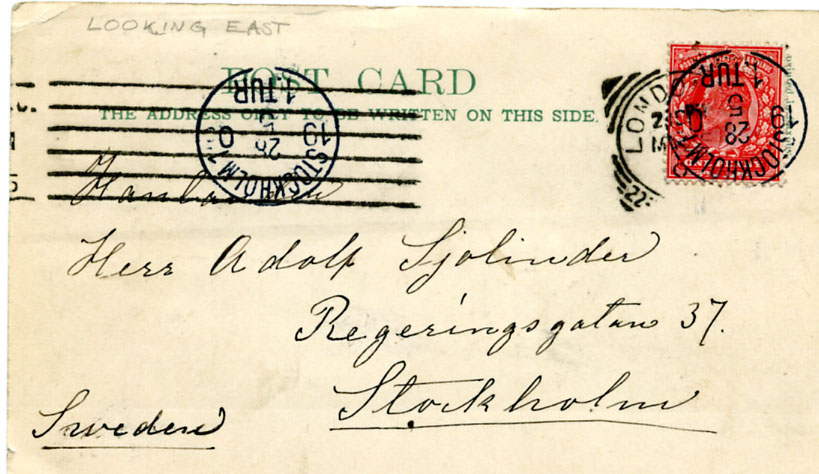 LOOKING EAST
POST CARD
THE ADDRESS ONLY TO BE WRITTEN ON THIS SIDE.
STOCKHOLM
1 TUR
19
LONDON
22
STOCKHOLM
1 TUR
28
5
19
Herr Adolf Sjölinder
Regeringsgatan 37.
Stockholm
Sweden